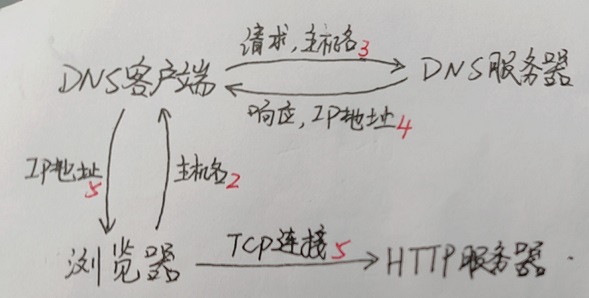 请求,主机名3
DNS客户端 DNS服务器
响应,IP地址4
IP地址5 主机名2
TCP连接5
浏览器 HTTP服务器.